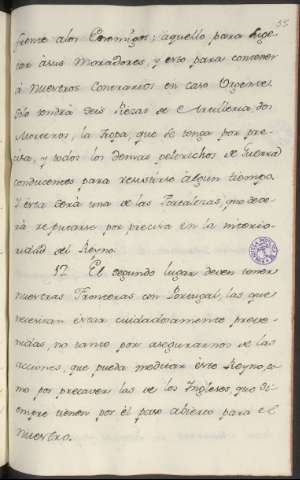 35
frente alos Enemigos; aquello para suge-
tar àsus Moradores, y esto para contener
à nuestros Contrarios en caso Urgente.
Solo tendrà seis Piezas de Artilleria, dos
Morteros, la tropa, que se tenga por pre-
cisa, y todos los demas petrechos de Guerra
conducentes para resistirse algun tiempo.
Y esta serà una de las Fortalezas, que debe-
rà reputarse por precisa en la interio-
ridad del Reyno.
17 El segundo lugar deven tener
nuestras Fronteras con Portugal, las que
necesitan estar cuidadosamente preve-
nidas, no tanto por asegurarnos de las
acciones, que pueda meditar este Reyno, co-
mo por precaver las de los Ingleses, que si-
empre tienen por èl paso abierto para el
nuestro.